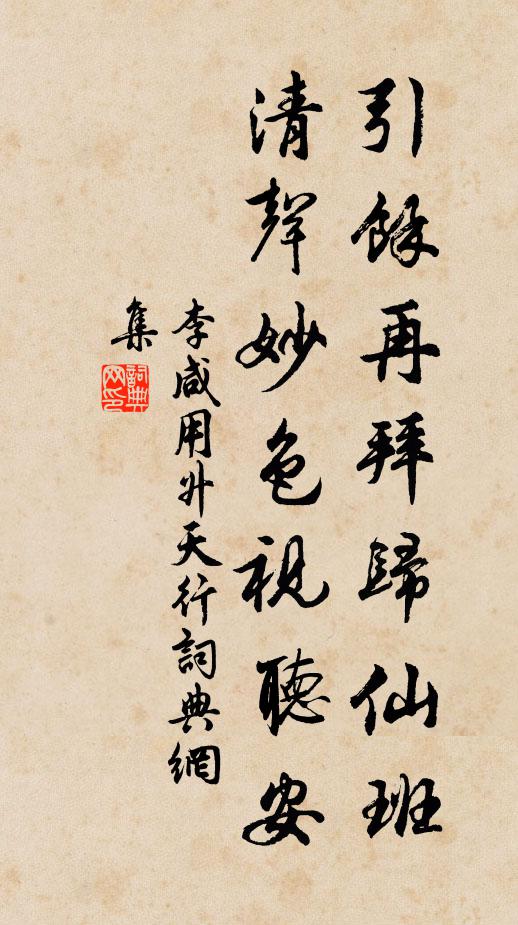 引餘再拜歸仙班
清聲妙色視聽安
李咸用升天行詞典網
集
詞典
网印